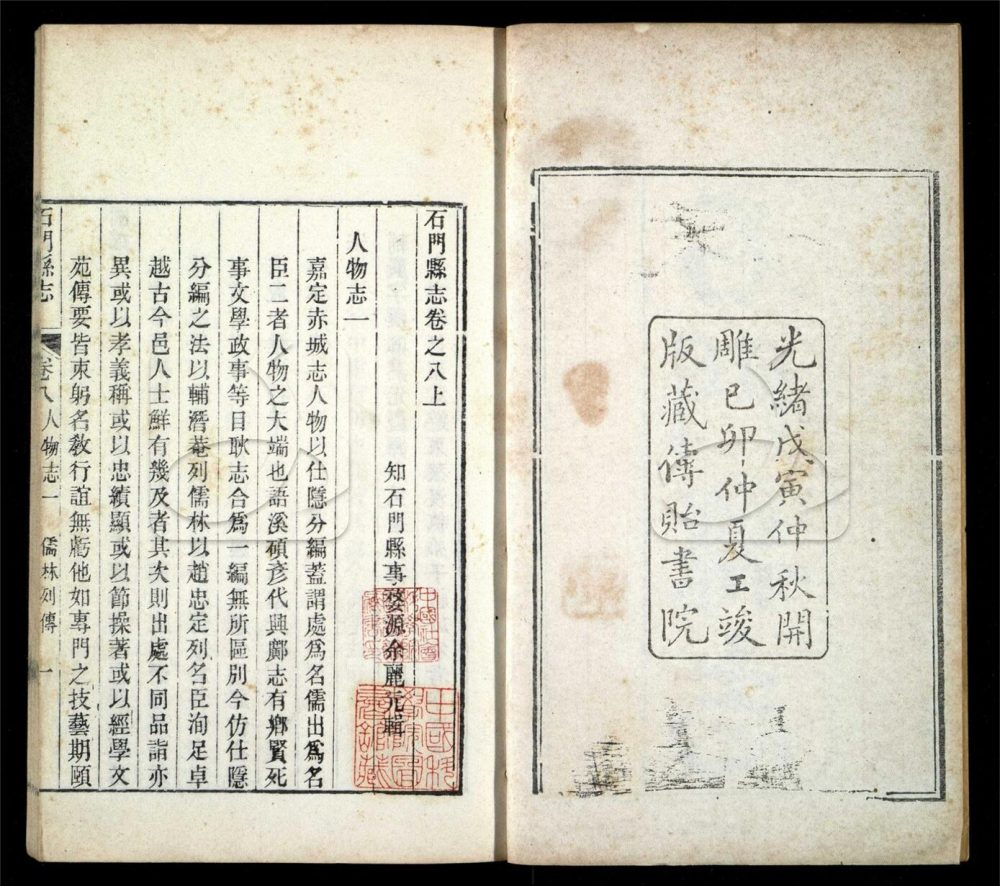 光緒戊寅仲秋開
雕己卯仲夏工竣
版藏傳貽書院
石門縣志卷之八上
知石門縣事婺源余麗元輯
人物志一
嘉定赤城志人物以仕隱分編蓋謂處爲名儒出爲名
臣二者人物之大端也語溪碩彥代興鄺志有鄉賢死
事文學政事等目耿志合爲一編無所區別今仿仕隱
分編之法以輔潛菴列儒林以趙忠定列名臣洵足卓
越古今邑人士鮮有幾及者其次則出處不同品詣亦
異或以孝義稱或以忠績顯或以節操著或以經學文
苑傳要皆束躬名敎行誼無虧他如專門之技藝期頤
石門縣志 卷八人物志一 儒林列傳 一